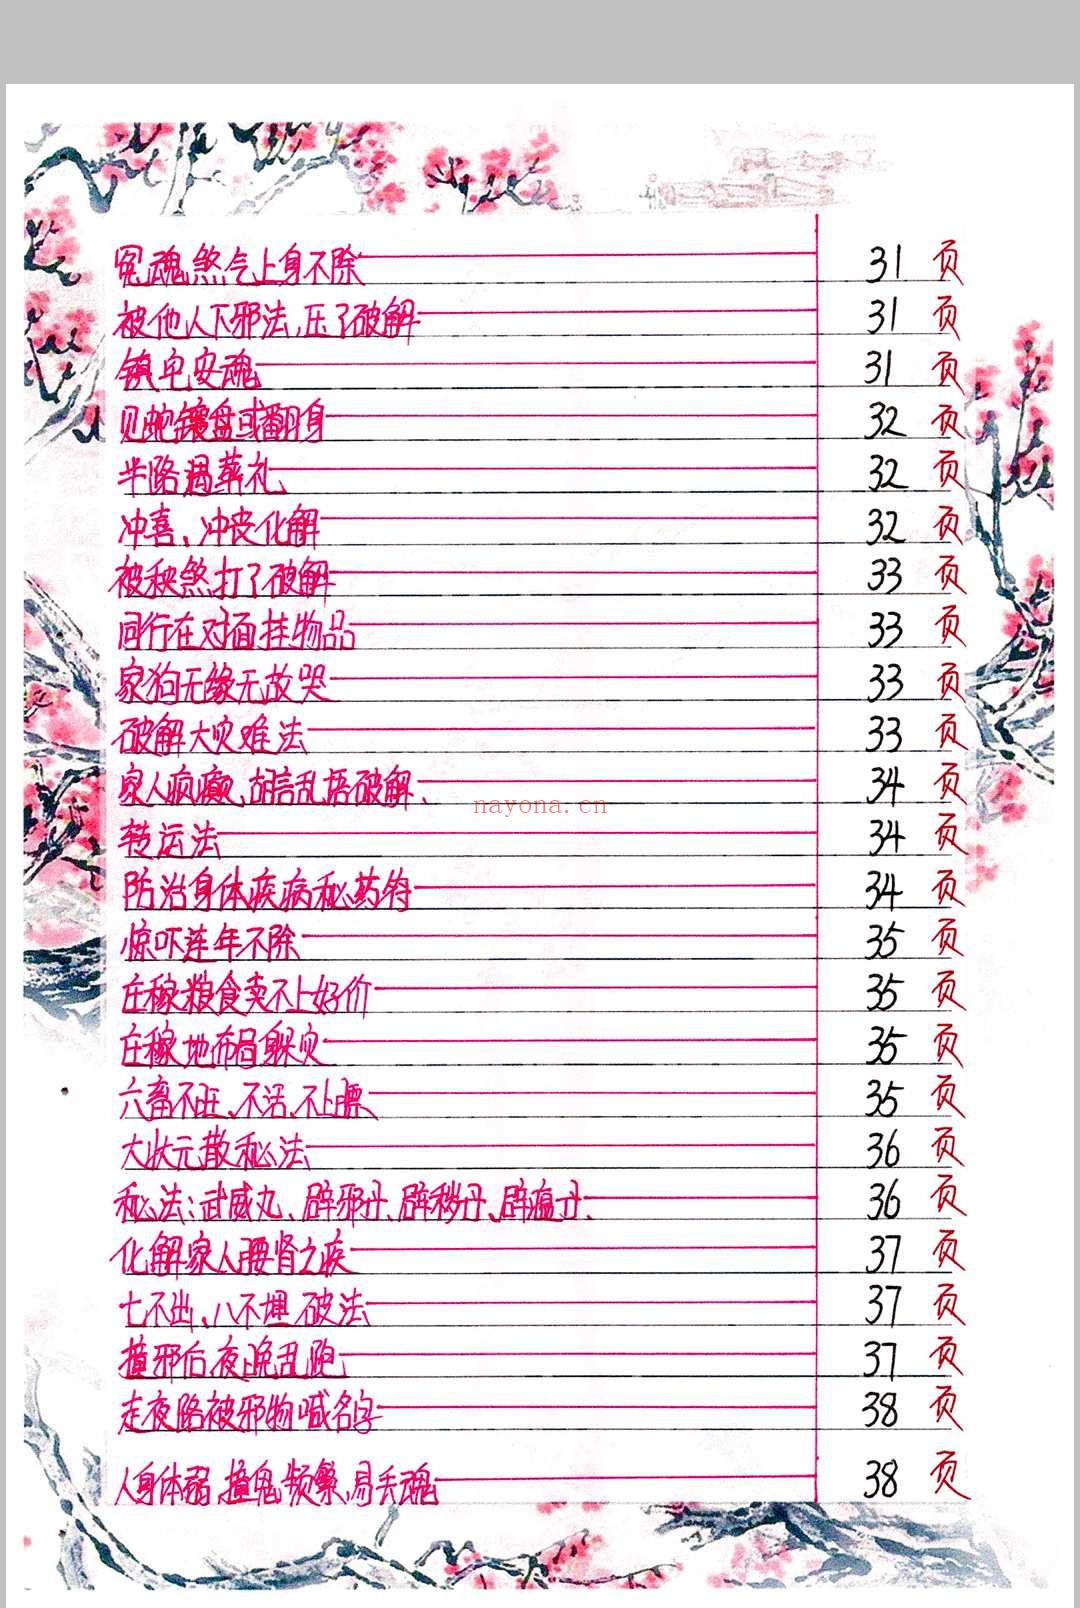 冤魂煞气上身不除 31 页
被他人下邪法、压了破解 31 页
镇宅安魂 31 页
见蛇镘盘或翻身 32 页
半路遇葬礼 32 页
冲喜、冲丧化解 32 页
被秧煞打了破解 33 页
同行在对面挂物品 33 页
家狗无缘无故哭 33 页
破解大灾难法 33 页
家人疯癫、胡言乱语破解、 34 页
转运法 34 页
防治身体疾病秘药符 34 页
惊吓连年不除 35 页
庄稼粮食卖不上好价 35 页
庄稼地布局躲灾 35 页
六畜不旺、不活、不上膘 35 页
大状元散秘法 36 页
秘法:武威丸、辟邪丹、辟秽丹、辟瘟丹、 36 页
化解家人腰肾之疾 37 页
七不出、八不埋 破法 37 页
撞邪后夜晚乱跑 37 页
nayona.cn
走夜路被邪物喊名字 38 页
人身体弱,撞鬼频繁,易丢魂 38 页